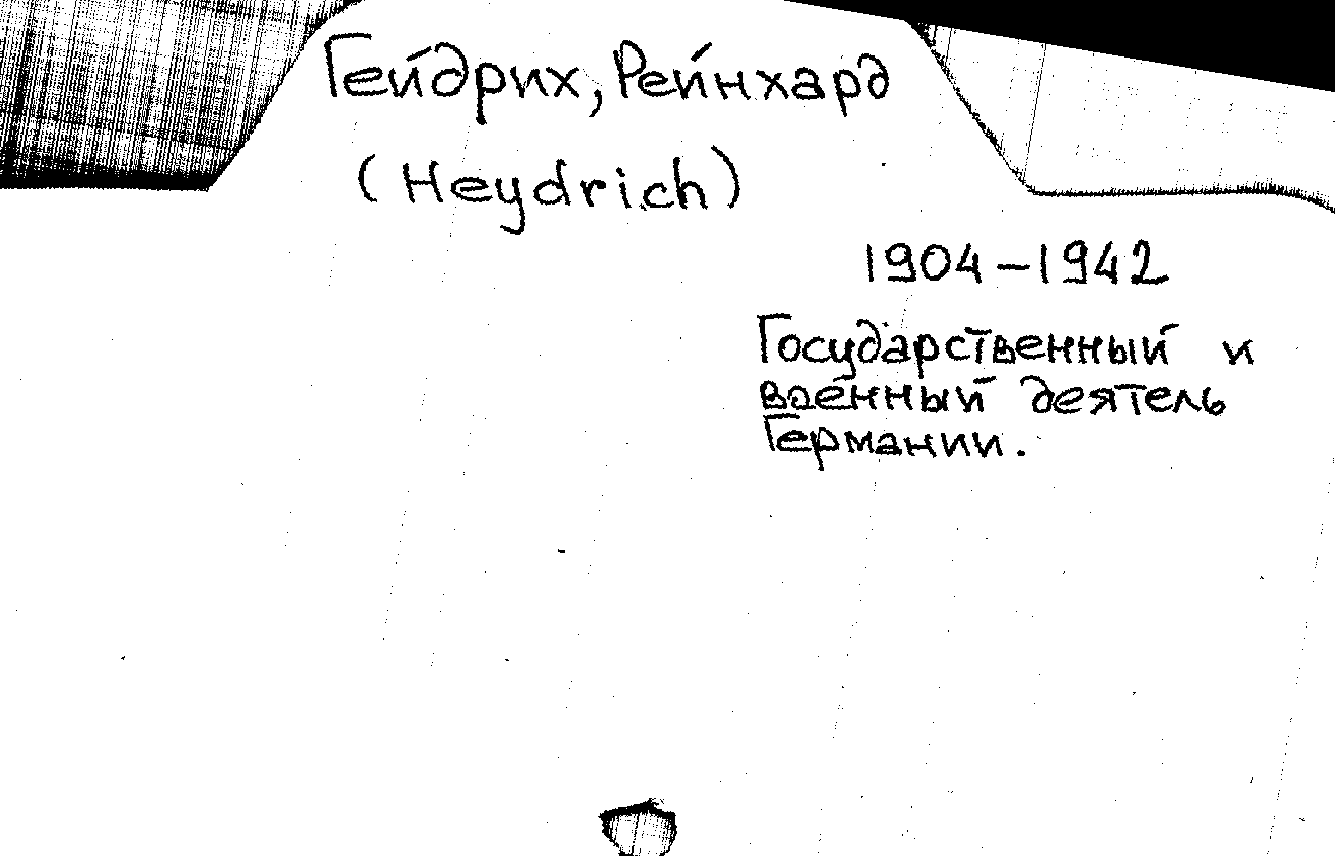 Гейдрих, Рейнхард
(Heydrich)
1904-1942
Государственный и
военный деятель
Германии.